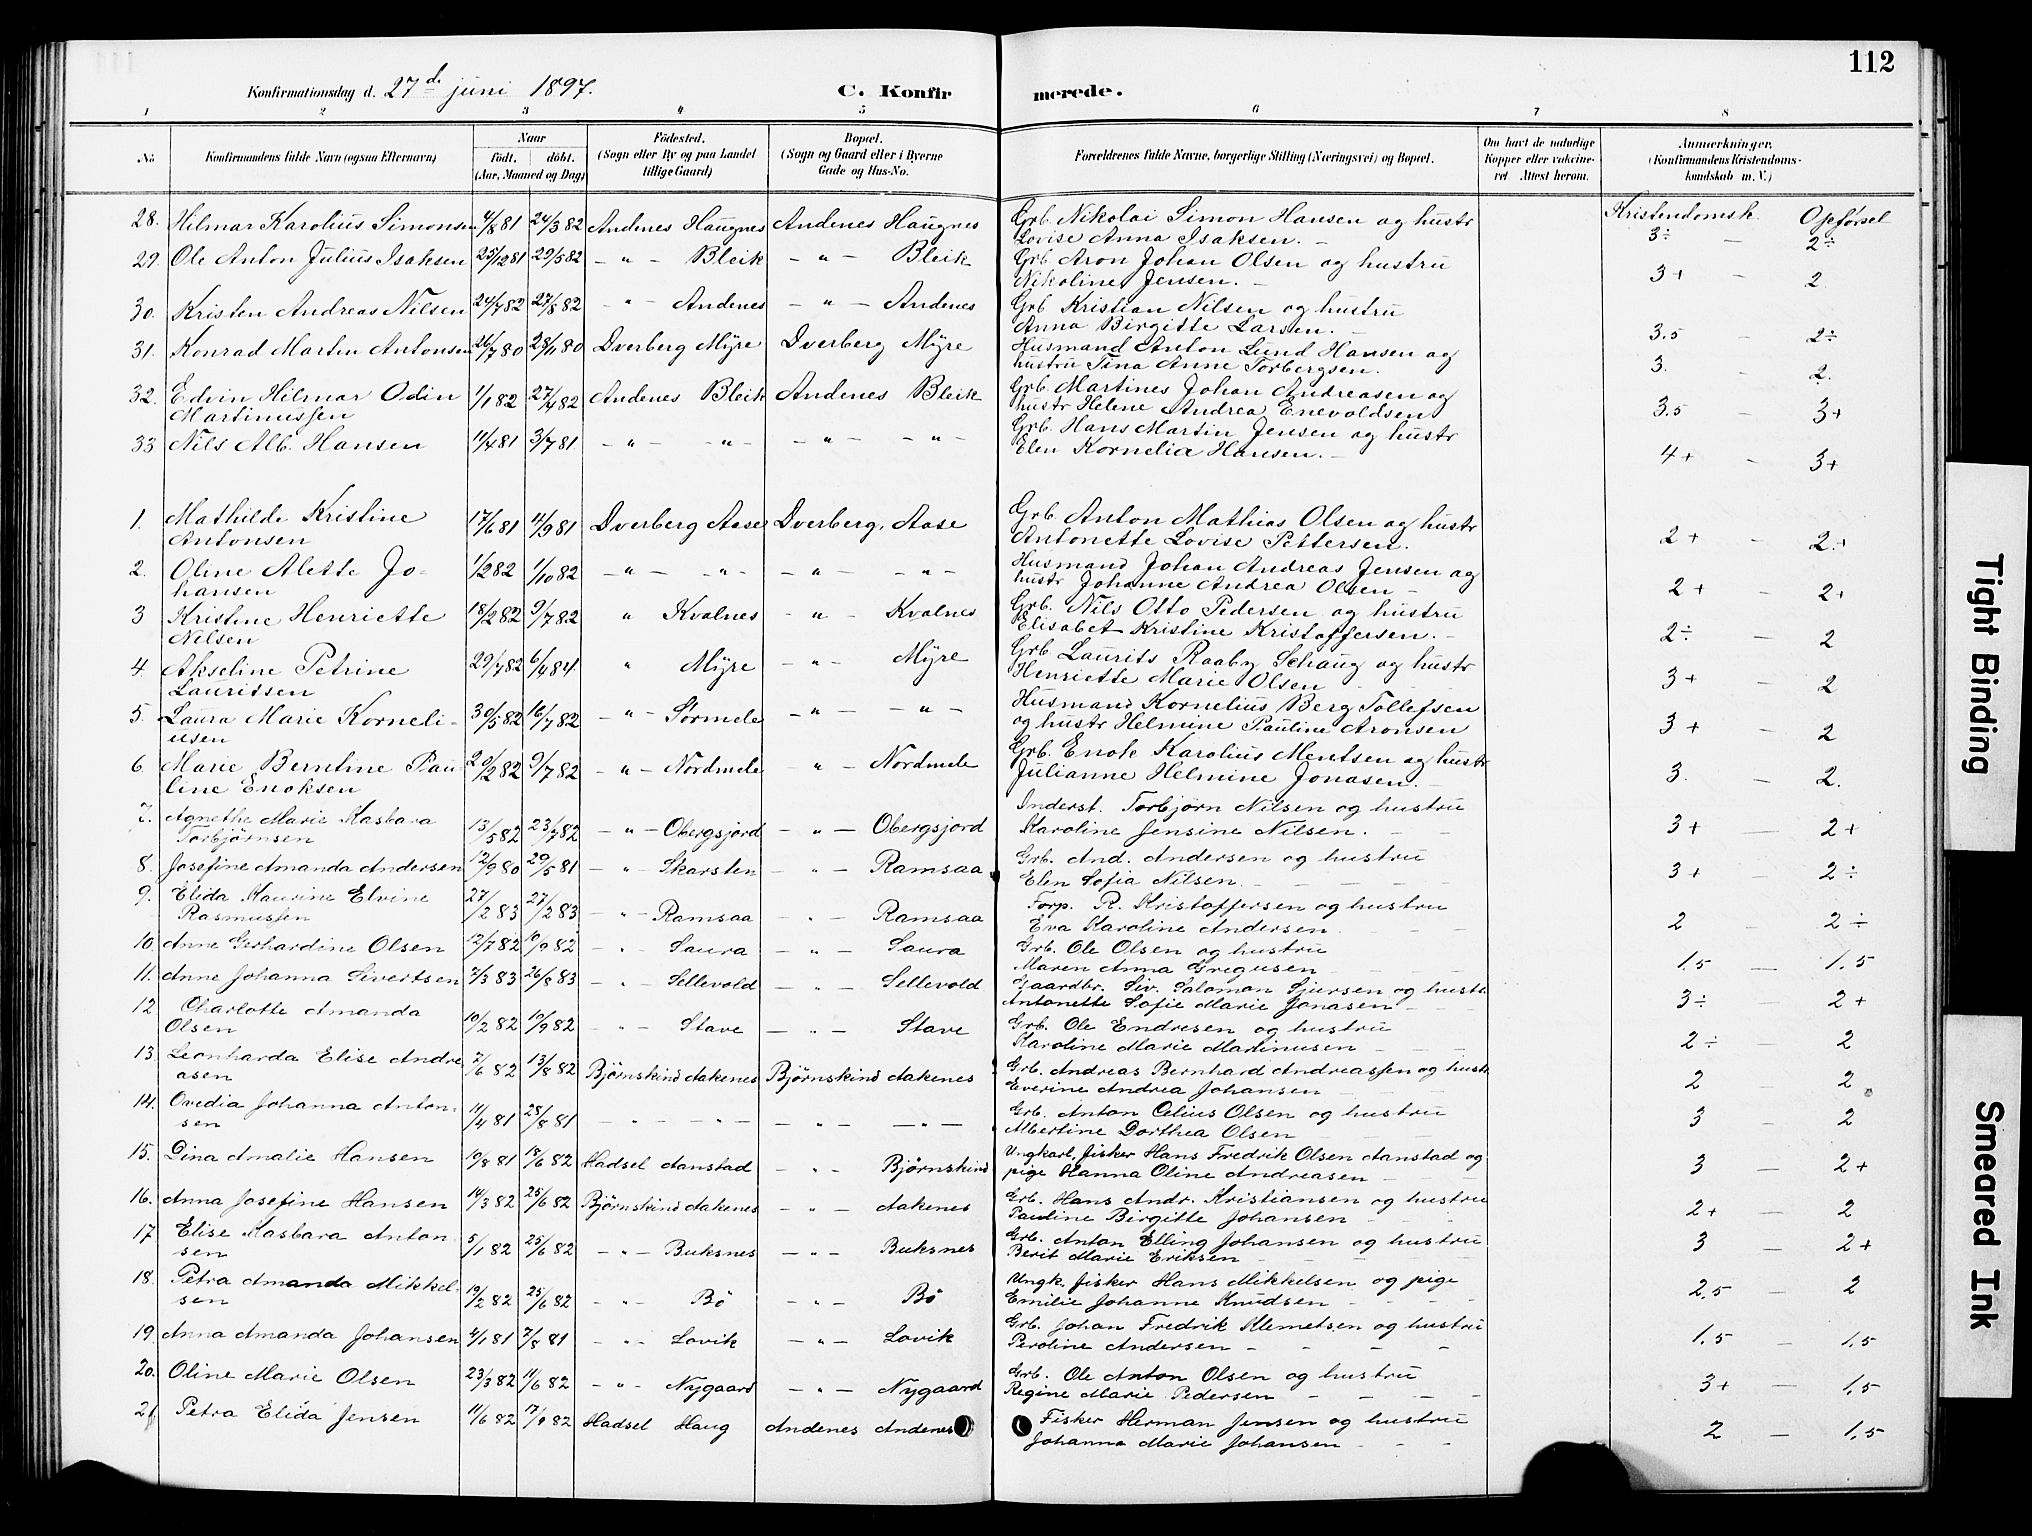 112
Konfirmationsdag d. 27d. juni 1897. C. Konfirmerede.
1 2 3 4 5 6 7 8
No Konfirmandens fulde Navn (ogsaa Efternavn) Naar født. døbt. (Aar, Maaned og Dag) Fødested. (Sogn eller By og paa Landet tillige Gaard) Bopæl. (Sogn og Gaard eller i Byerne Gade og Hus-No. Forældrenes fulde Navne, borgerlige Stilling (Næringsvei) og Bopæl. Om havt de naturlige Kopper eller vaccineret Attest herom. Anmærkninger, (Konfirmandens Kristendomskundskab m. V.)
Kristendomsk. Opførsel
28. Hilmar Karolius Simonsen 4/8 81 24/3 82 Andenes Haugnes Andenes Haugnes Grb. Nikolai Simon Hansen og hustr 3÷ – 2÷
Lovise Anna Isaksen. –
29. Ole Anton Julius Isaksen 25/12 81 29/5 82 – " – Bleik – " – Bleik Grb Aron Johan Olsen og hustru 3+ – 2
Nikoline Jensen. –
30. Kristen Andreas Nilsen 24/7 82 27/8 82 – " – Andenes – " – Andenes Grb Kristian Nilsen og hustru 3.5 – 2÷
Anna Birgitte Larsen. –
31. Konrad Martin Antonsen 26/7 80 28/11 80 Dverberg Myre Dverberg Myre Husmand Anton Lund Hansen og 3. – 2.
hustru Tina Anne Torbergsen. –
32. Edvin Hilmar Odin 1/1 82 27/4 82 Andenes Bleik Andenes Bleik Grb. Martines Johan Andreasen og 3.5 – 3+
Martinussen hustr Helene Andrea Enevoldsen
33 Nils Alb. Hansen 11/4 81 3/7 81 – " – – " – – " – – " – Grb. Hans Martin Jensen og hustr 4+ – 3+
Elen Kornelia Hansen. –
1. Mathilde Kristine 17/6 81 11/9 81 Dverberg Aase Dverberg, Aase Grb. Anton Mathias Olsen og hustr 2+ – 2.+
Antonsen Antonette Lovise Pettersen.
2. Oline Alette Jo- 1/2 82 1/10 82 – " – – " – – " – – " – Husmand Johan Andreas Jensen og 2+ – 2+
hansen hustr Johanne Andrea Olsen –
3 Kristine Henriette 18/2 82 9/7 82 " Kvalnes – " – Kvalnes Grb. Nils Otto Pedersen og hustru 2÷ – 2
Nilsen Elisabet Kristine Kristoffersen. –
4. Akseline Petrine 29/7 82 6/4 84 " Myre – " – Myre Grb Laurits Raaby Schaug og hustr 3+ – 2
Lauritsen Henriette Marie Olsen
5. Laura Marie Korneli- 30/5 82 16/7 82 – " – Sørmele – " – – " – Husmand Kornelius Berg Tollefsen 3+ – 2
usen og hustr Helmine Pauline Aronsen
6. Marie Berntine Pau- 20/2 82 9/7 82 – " – Nordmele – " – Nordmele Grb. Enok Karolius Mentsen og hustr 3. – 2.
line Enoksen Julianne Helmine Jonasen. –
7. Agnethe Marie Kasbara 13/5 82 23/7 82 – " – Obergsjord – " – Obergsjord Inderst. Torbjørn Nilsen og hustru 3+ – 2+
Torbjørnsen Karoline Jensine Nilsen. –
8. Josefine Amanda Andersen 12/9 80 29/5 81 – " – Skarsten – " – Ramsaa Grb. And. Andersen og hustru 3+ – 2÷
Elen Sofia Nilsen. –
9. Elida Maurine Elvine 27/2 83 27/2 83 – " – Ramsaa – " – Ramsaa Forp. R. Kristoffersen og hustru 2 – 2÷
Rasmussen Eva Karoline Andersen
10. Anne Gerhardine Olsen 12/7 82 10/9 82 – " – Saura – " – Saura Grb. Ole Olsen og hustru 1.5 – 1.5
Maren Anna Gregusen
11. Anne Johanna Sivertsen 7/3 83 26/8 83 – " – Sellevold – " – Sellevold Gaardbr. Siv. Salomon Sjursen og hustr. 3÷ – 2+
Antonette Sofie Marie Jonasen
12. Charlotte Amanda 10/2 82 10/9 82 – " – Stave – " – Stave Grb. Ole Endresen og hustru 2÷ – 2
Olsen Karoline Marie Martinusen
13. Leonharda Elise Andre 7/6 82 13/8 82 Bjørnskind Aakenes Bjørnskind Aakenes Grb. Andreas Bernhard Andreassen og hustr 2 – 2
asen Everine Andrea Johansen
14. Ovedia Johanna Anton- 11/4 81 28/8 81 – " – – " – – " – – " – Grb. Anton Celius Olsen og hustru 3 – 2
sen Albertine Dorthea Olsen
15. Dina Amalie Hansen 19/8 81 18/6 82 Hadsel Aanstad – " – Bjørnskind Ungkarl, fisker Hans Fredrik Olsen Aanstad og 3 – 2+
pige Hanna Oline Andreasen
16. Anna Josefine Hansen 14/3 82 25/6 82 Bjørnskind Aakenes – " – Aakenes Grb. Hans Andr. Kristiansen og hustru 2+ – 2
Pauline Birgitte Johansen
17 Elise Kasbara Anton- 5/1 82 25/6 82 – " – Buksnes – " – Buksnes Grb. Anton Elling Johansen og hustru 3 – 2+
sen Berit Marie Eriksen
18. Petra Amanda Mikkel- 19/2 82 25/6 82 – " – Bø – " – Bø Ungk, fisker Hans Mikkelsen og pige 2.5 – 2
sen Emilie Johanne Knudsen
19. Anna Amanda Johansen 4/1 81 7/8 81 – " – Lovik – " – Lovik Grb. Johan Fredrik Klemetsen og hustru 1.5 – 1.5
Peroline Andersen
20. Oline Marie Olsen 23/3 82 11/6 82 – " – Nygaard – " – Nygaard Grb. Ole Anton Olsen og hustru 3+ – 1.5
Regine Marie Pedersen
21 Petra Elida Jensen 11/6 82 17/9 82 Hadsel Haug Andenes Andenes Fisker Herman Jensen og hustru 2 – 1.5
Johanna Marie Johansen
Tight Binding
Smeared Ink